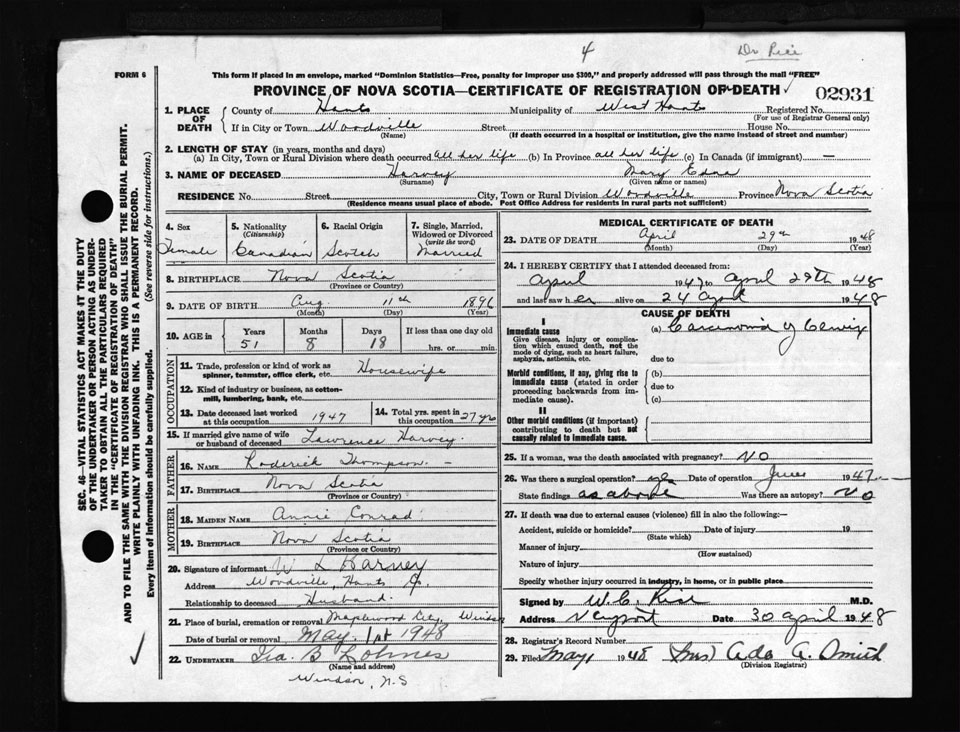 4
Dr Rice
FORM 6
This form if placed in an envelope, marked "Dominion Statistics—Free, penalty for improper use $300," and properly addressed will pass through the mail "FREE"
PROVINCE OF NOVA SCOTIA—CERTIFICATE OF REGISTRATION OF DEATH ✓
02931
1. PLACE OF DEATH
County of Hants Municipality of West Hants Registered No.
(For use of Registrar General only)
If in City or Town Woodville Street House No.
(Name) (If death occurred in a hospital or institution, give the name instead of street and number)
2. LENGTH OF STAY (in years, months and days)
(a) In City, Town or Rural Division where death occurred all her life (b) In Province all her life (c) In Canada (if immigrant) —
3. NAME OF DECEASED Harvey Mary Edna
(Surname) (Given name or names)
RESIDENCE No. Street City, Town or Rural Division Woodville Province Nova Scotia
(Residence means usual place of abode. Post Office Address for residents in rural parts not sufficient)
4. Sex
Female
5. Nationality
(Citizenship)
Canadian
6. Racial Origin
Scotch
7. Single, Married, Widowed or Divorced
(write the word)
Married
8. BIRTHPLACE Nova Scotia
(Province or Country)
9. DATE OF BIRTH Aug. 11th 1896
(Month) (Day) (Year)
10. AGE in
Years Months Days If less than one day old
51 8 18 hrs. or min.
OCCUPATION
11. Trade, profession or kind of work as
spinner, teamster, office clerk, etc. Housewife
12. Kind of industry or business, as cotton-
mill, lumbering, bank, etc.
13. Date deceased last worked
at this occupation 1947
14. Total yrs. spent in
this occupation 27 yrs
15. If married give name of wife
or husband of deceased Lawrence Harvey.
FATHER
16. NAME Roderick Thompson. —
17. BIRTHPLACE Nova Scotia
(Province or Country)
MOTHER
18. MAIDEN NAME Annie Conrad
19. BIRTHPLACE Nova Scotia
(Province or Country)
20. Signature of informant W L Harvey
Address Woodville Hants Co.
Relationship to deceased Husband.
21. Place of burial, cremation or removal Maplewood Cty. Windsor
Date of burial or removal May. 1st 1948
22. UNDERTAKER Ira. B Lohnes
(Name and address)
Windsor, N.S
MEDICAL CERTIFICATE OF DEATH
23. DATE OF DEATH April 29th 1948
(Month) (Day) (Year)
24. I HEREBY CERTIFY that I attended deceased from:
April 1947 to April 29th 1948
and last saw her alive on 24 April 1948
CAUSE OF DEATH
I
Immediate cause
Give disease, injury or complica-
tion which caused death, not the
mode of dying, such as heart failure,
asphyxia, asthenia, etc.
(a) Carcinoma of Cervix
due to
Morbid conditions, if any, giving rise to
immediate cause (stated in order
proceeding backwards from im-
mediate cause).
(b)
due to
(c)
II
Other morbid conditions (if important)
contributing to death but not
causally related to immediate cause.
25. If a woman, was the death associated with pregnancy? NO
26. Was there a surgical operation? yes Date of operation June 1947
State findings as above Was there an autopsy? NO
27. If death was due to external causes (violence) fill in also the following:—
Accident, suicide or homicide? Date of injury 19
(State which)
Manner of injury
(How sustained)
Nature of injury
Specify whether injury occurred in industry, in home, or in public place
Signed by W.C. Rice M.D.
Address Newport Date 30 April 1948
28. Registrar's Record Number
29. Filed May 1 1948 (Mrs) Ada A. Smith
(Division Registrar)
SEC. 46—VITAL STATISTICS ACT MAKES IT THE DUTY
OF THE UNDERTAKER OR PERSON ACTING AS UNDER-
TAKER TO OBTAIN ALL THE PARTICULARS REQUIRED
IN THE "CERTIFICATE OF REGISTRATION OF DEATH"
AND TO FILE THE SAME WITH THE DIVISION REGISTRAR WHO SHALL ISSUE THE BURIAL PERMIT.
WRITE PLAINLY WITH UNFADING INK. THIS IS A PERMANENT RECORD.
Every item of information should be carefully supplied. (See reverse side for instructions.)
✓